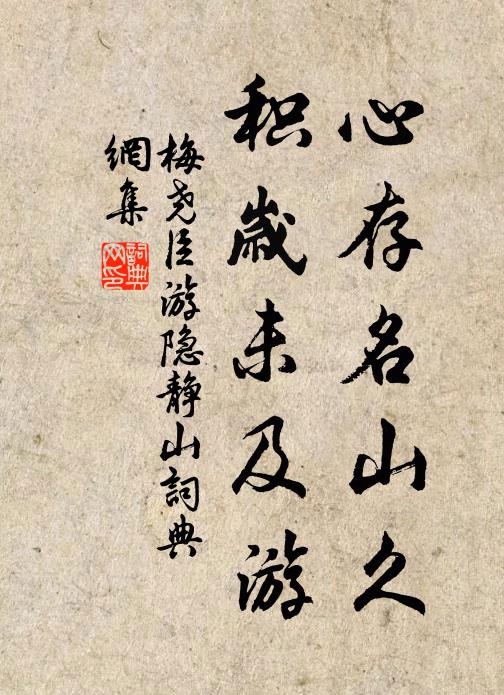 心存名山久
积岁未及游
梅尧臣游隐静山词典
網集
詞典
网印